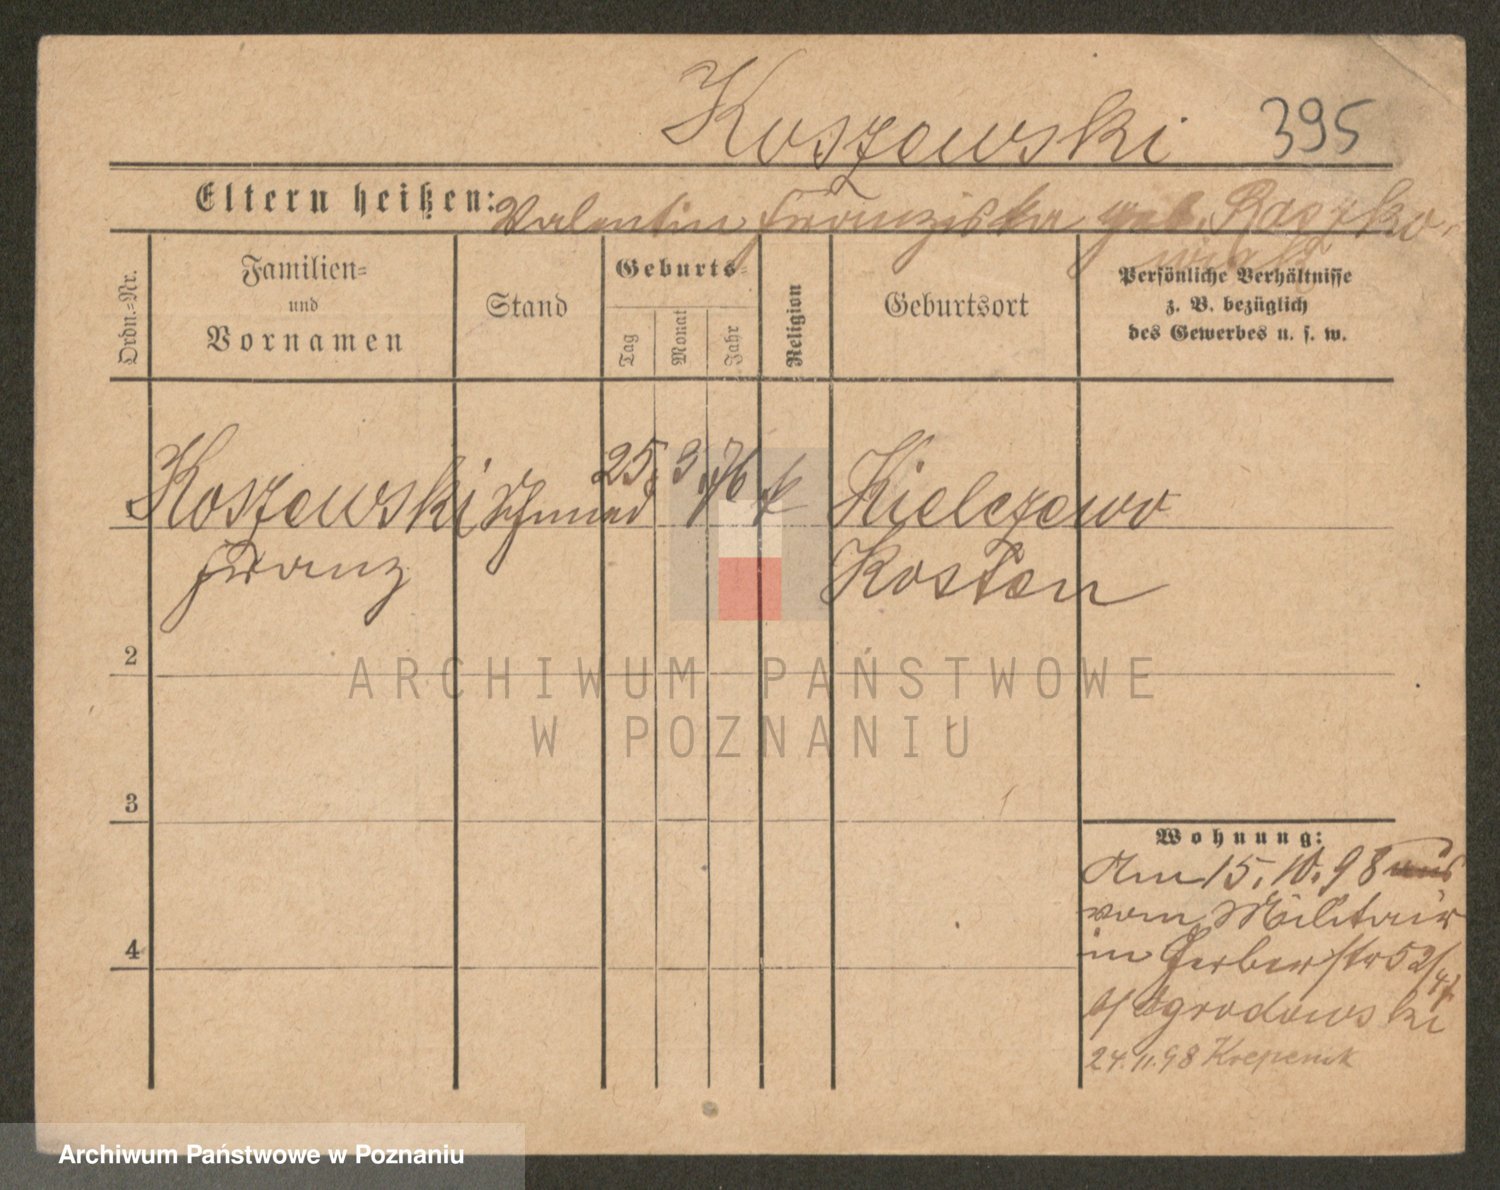 Koszewski 395
Eltern heißen: Valentin Franziska geb. Raszko-
wiak
Ordn.-Nr.
Familien-
und
Vornamen
Stand
Geburts-
Tag
Monat
Jahr
Religion
Geburtsort
Persönliche Verhältnisse
z. B. bezüglich
des Gewerbes u. s. w.
Koszewski Schmied 25. 3. 76 k Kielczewo
Franz Kosten
2
3
4
ARCHIWUM PAŃSTWOWE
W POZNANIU
Wohnung:
Am 15. 10. 98
vom Militair
in Gerberstr 52/
b/ Ogrodowski
24.11.98
Archiwum Państwowe w Poznaniu